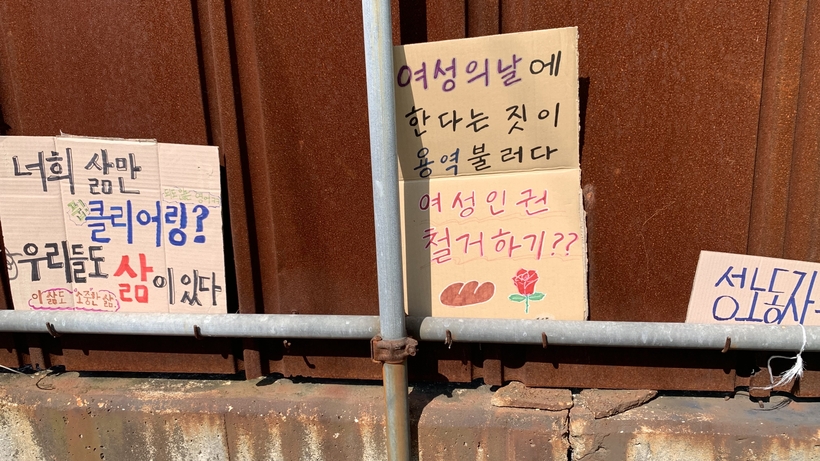 너희 삶만
클리어링?
우리들도 삶이 있다
이 삶도 소중한 삶
여성의날에
한다는 짓이
용역불러다
여성인권
철거하기??
성노동자